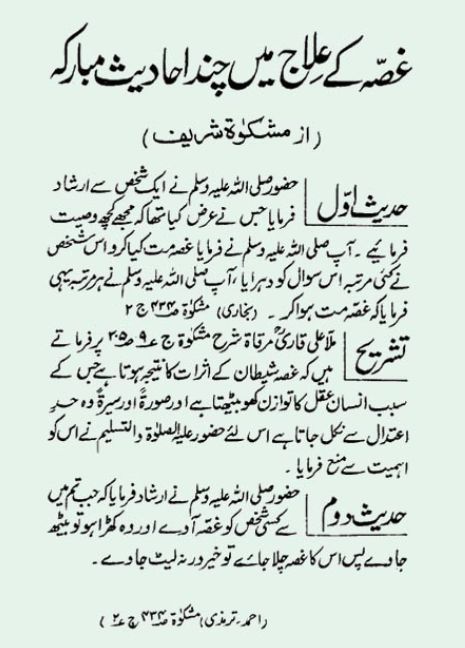 غصّہ کے عِلاج میں چند احادیث مبارکہ
(از مشکوٰۃ شریف)
حدیث اوّل حضور صلی اللہ علیہ وسلم نے ایک شخص سے ارشاد
فرمایا جس نے عرض کیا تھا کہ مجھے کچھ وصیت
فرمائیے ۔ آپ صلی اللہ علیہ وسلم نے فرمایا غصہ مت کیا کرو اس شخص
نے کئی مرتبہ اس سوال کو دہرایا، آپ صلی اللہ علیہ وسلم نے ہر مرتبہ یہی
فرمایا کہ غصّہ مت ہوا کر ۔ (بخاری) مشکوٰۃ صـ ۴۳۴ ج ۲
تشریح ملا علی قاریؒ مرقاۃ شرح مشکوٰۃ ج عـ ۹ صـ ۲۰۵ پر فرماتے
ہیں کہ غصہ شیطان کے اثرات کا نتیجہ ہوتا ہے جس کے
سبب انسان عقل کا توازن کھو بیٹھتا ہے اور صورۃً اور سیرۃً وہ حدِ
اعتدال سے نکل جاتا ہے اس لئے حضور علیہ الصلوٰۃ والتسلیم نے اس کو
اہمیت سے منع فرمایا ۔
حدیث دوم حضور صلی اللہ علیہ وسلم نے ارشاد فرمایا کہ جب تم میں
سے کسی شخص کو غصّہ آوے اور وہ کھڑا ہو تو بیٹھ
جاوے پس اس کا غصہ چلا جائے تو خیر ورنہ لیٹ جاوے ۔
(احمد ـ ترمذی) مشکوٰۃ صـ ۴۳۴ ج عـ ۲)